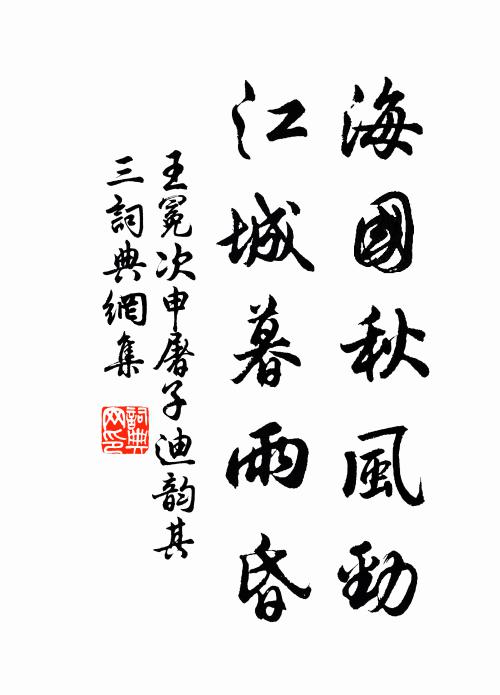 海國秋風勁
江城暮雨昏
王冕次申屠子迪韵其
三詞典網集
詞典网印